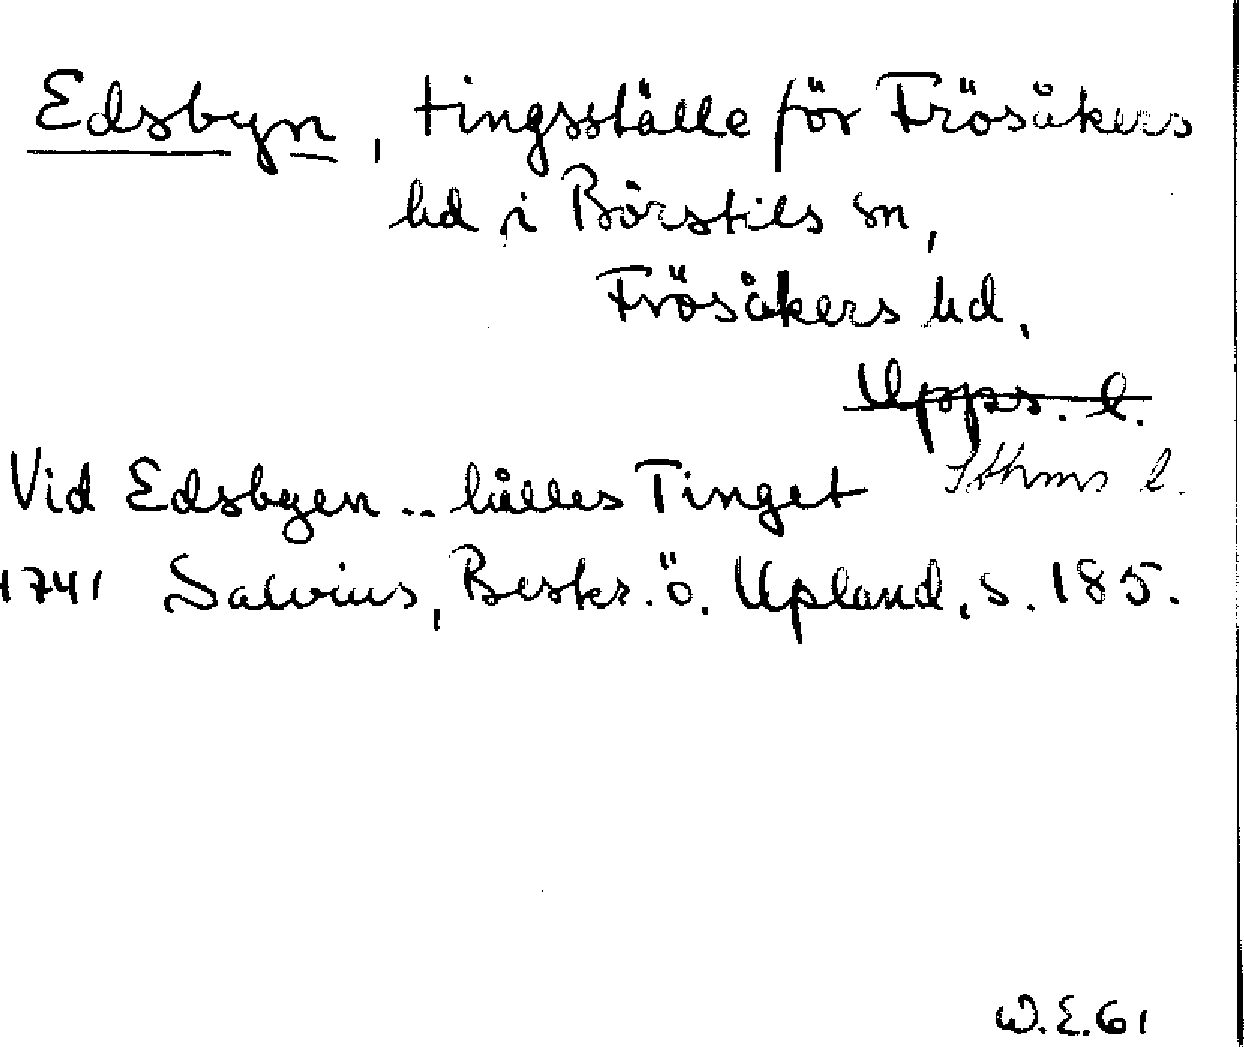 Edsbyn, tingsställe för Frösåkers
hd i Börstils sn,
Frösåkers hd.
Upps. l.
Sthms l.
Vid Edsbyen .. hålles Tinget
1741 Salvius, Beskr. ö. Upland, s. 185.
W.E.61